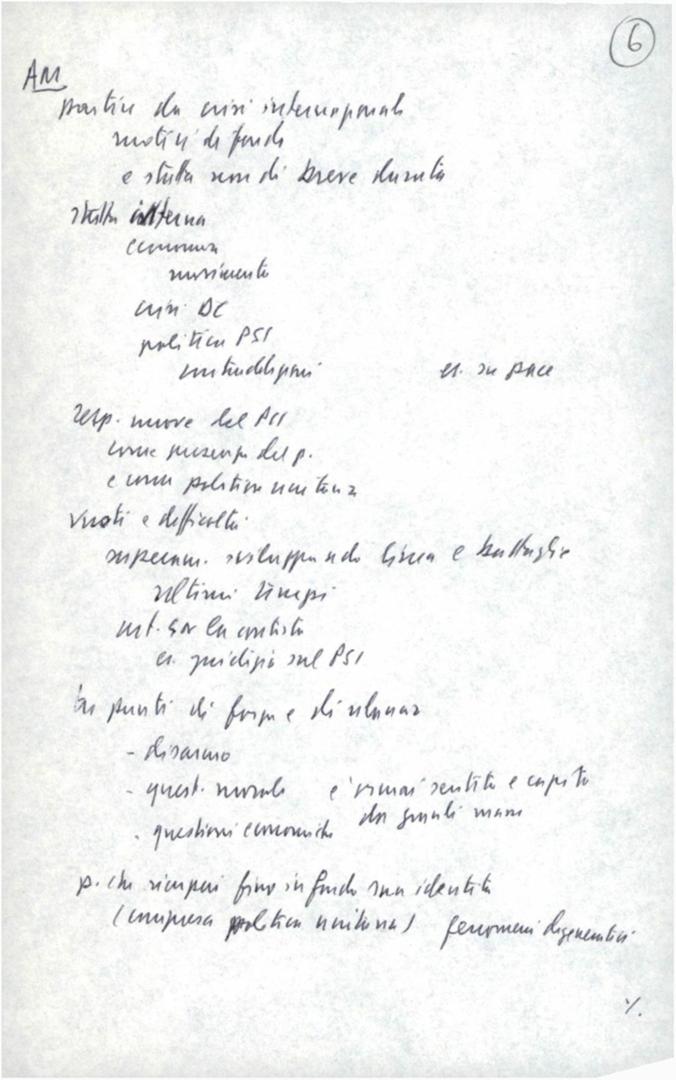 6
AM
partire da crisi internazionale
motivi di fondo
e stretta non di breve durata
stretta interna
economia
movimento
crisi DC
politica PSI
contraddizioni es. su pace
resp. nuove del PCI
come presenza del p.
e come politica unitaria
vuoti e difficoltà
superam. sviluppando linea e battaglie
ultimi tempi
la contista
es. giudizio sul PSI
tre punti di forza e di rilancio
- disarmo
- quest. morale è ormai sentita e capita
da grandi masse
- questioni economiche
p. che recuperi fino in fondo sua identità
(compresa politica unitaria) fenomeni degenerativi
%.